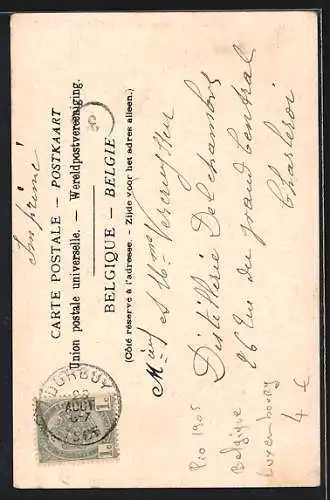 Imprimé
CARTE POSTALE — POSTKAART
Union postale universelle. — Wereldpostvereeniging.
BELGIQUE — BELGIE
(Côté réservé à l'adresse. — Zijde voor het adres alleen.)
8
Mr et Mme Vercruyssen
Distillerie Delchambre
26 Rue du grand Central
Charleroi
DURBUY
AOUT
1905
1c 1c
Pio 1905
Belgique
Luxembourg
4 €